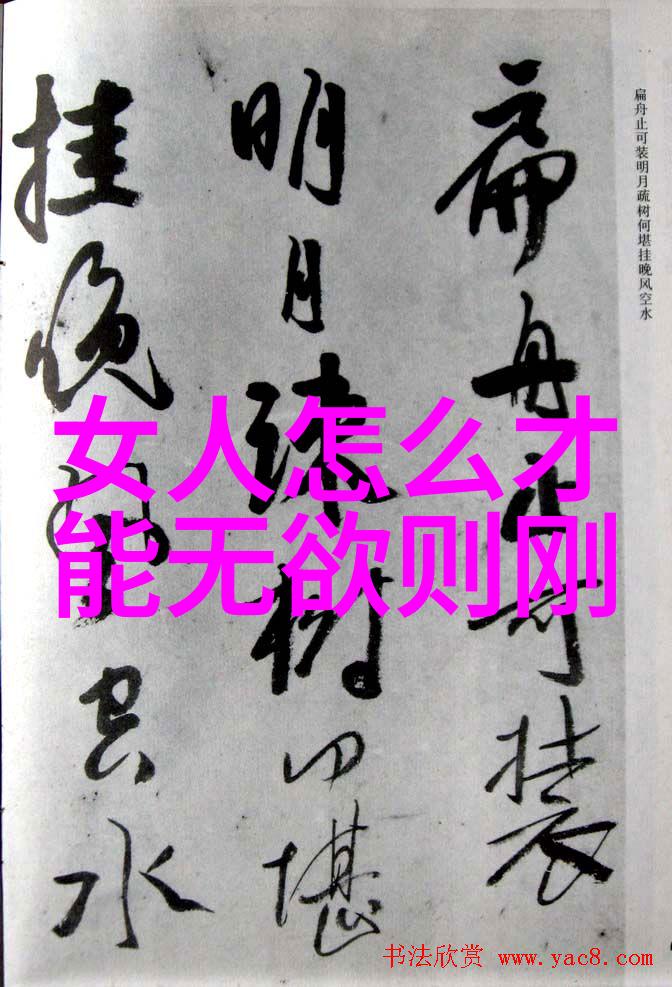 扁舟止可装
明月疏树何堪
挂晚风空水
扁舟止可装明月疏树何堪挂晚风空水
女人怎么才
能无欲则刚
书法欣赏 www.yac8.com